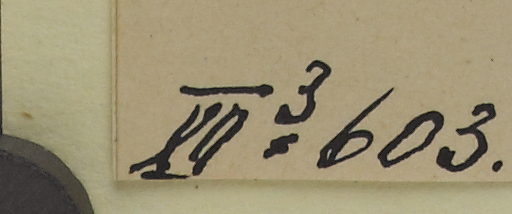 XII³ 603.